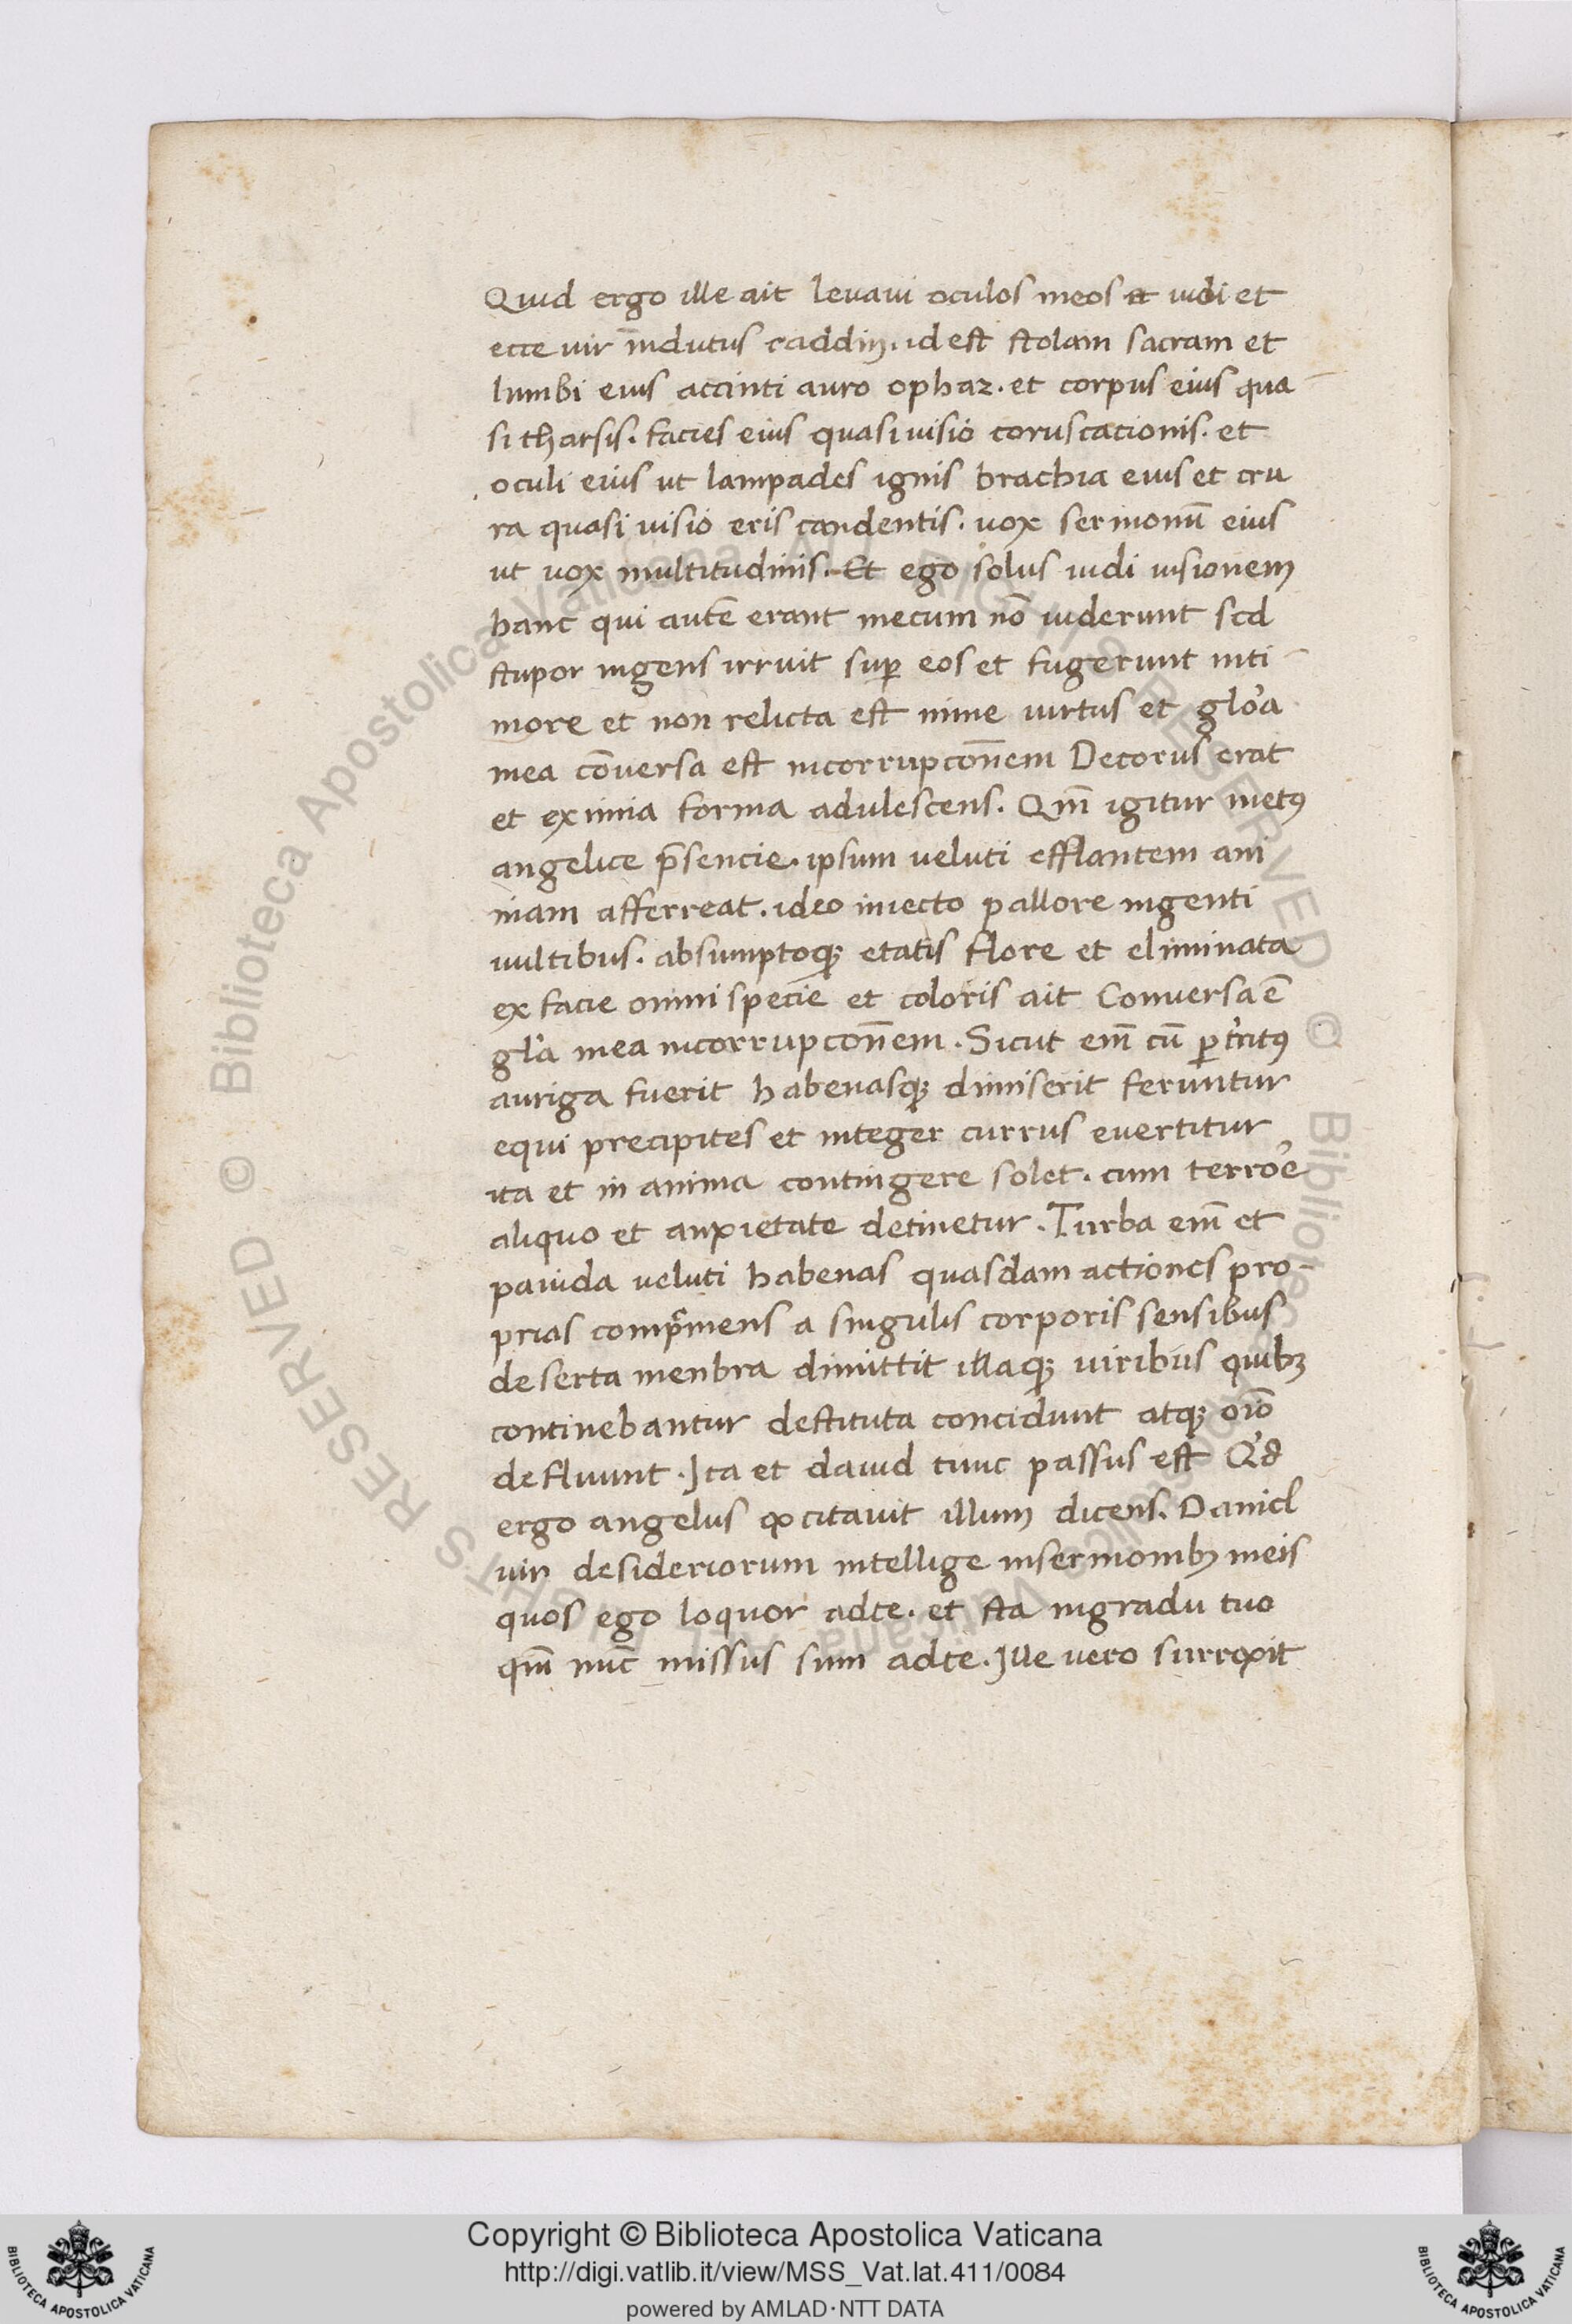 Quid ergo ille ait levavi oculos meos et vidi et
ecce vir īndutus caddin. id est stolam sacram et
lumbi eius accinti auro ophaz. et corpus eius qua
si tharsis. facies eius quasi visio coruscacionis. et
oculi eius ut lampades ignis brachia eius et cru
ra quasi visio eris candentis. vox sermonū eius
ut vox multitudinis. Et ego solus vidi visionem
hanc qui autē erant mecum nō viderunt sed
stupor ingens irruit suꝑ eos et fugerunt inti
more et non relicta est inme virtus et glo'a
mea cōversa est incorrupcōnem Decorus erat
et eximia forma adulescens. Qm̄ igitur metꝰ
angelice p̄sencie. ipsum veluti efflantem ani
mam afferreat. ideo iniecto pallore ingenti
vultibus. absumptoqꝫ etatis flore et eliminata
ex facie omni specie et coloris ait Conversa ē
gl'a mea incorrupcōnem. Sicut em̄ cū ꝑt'ritꝰ
auriga fuerit habenasqꝫ dimiserit feruntur
equi precipites et integer currus evertitur
ita et in anima contingere solet. cum terro'e
aliquo et anxietate detinetur. Turba em̄ et
pavida veluti habenas quasdam actiones pro-
prias comp'mens a singulis corporis sensibus
deserta menbra dimittit illaqꝫ viribus quibꝫ
continebantur destituta concidunt atqꝫ oīo
defluunt. Ita et david tunc passus est Q'd
ergo angelus excitavit illum dicens. Daniel
vir desideriorum intellige insermonibꝫ meis
quos ego loquor adte. et sta ingradu tuo
qm̄ nūc missus sum adte. Ille vero surrexit
© Biblioteca Apostolica Vaticana ALL RIGHTS RESERVED © Biblioteca Apostolica Vaticana ALL RIGHTS RESERVED
Copyright © Biblioteca Apostolica Vaticana
http://digi.vatlib.it/view/MSS_Vat.lat.411/0084
powered by AMLAD·NTT DATA
BIBLIOTECA APOSTOLICA VATICANA
BIBLIOTECA APOSTOLICA VATICANA